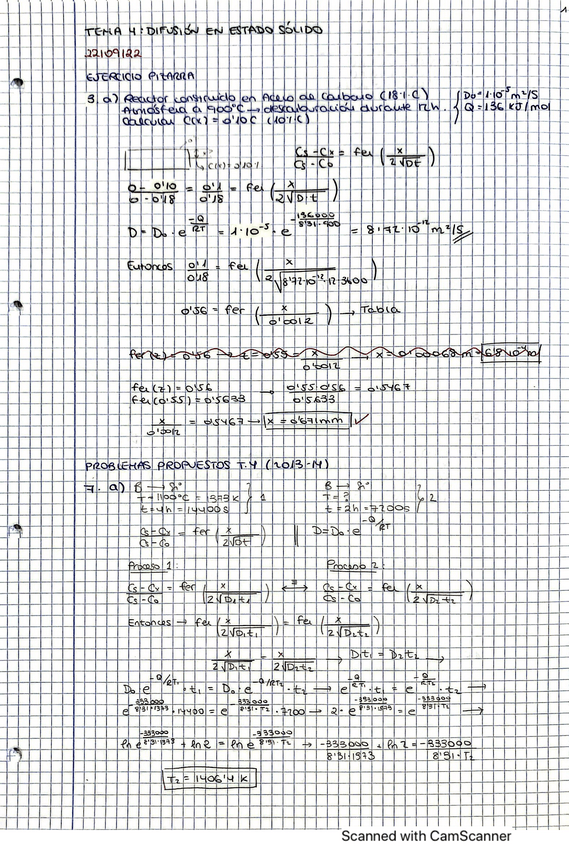 1
TEMA 4: DIFUSIÓN EN ESTADO SÓLIDO
22/09/22
EJERCICIO PIZARRA
3. a) Reactor construido en Acero de Carbono (18% C) { D₀ = 1·10⁻⁵ m²/s
Atmósfera a 900°C → descarburación durante 12h. Q = 136 kJ/mol
Calcular C(x) = 0'10 C (10% C)
C(x) = 0'10%
(Cs - Cx)/(Cs - C0) = fer (x/(2√Dt))
(0 - 0'10)/(0 - 0'18) = 0'1/0'18 = fer (x/(2√D·t))
D = D₀ · e^(-Q/RT) = 1·10⁻⁵ · e^(-136000/8'31·900) = 8'72·10⁻¹² m²/s
Entonces 0'1/0'18 = fer (x/(2√8'72·10⁻¹²·12·3600))
0'56 = fer (x/0'0012) → Tabla
fer(z) = 0'56 → z = 0'55 = x/0'0012 → x = 0'00068 m = 6'8·10⁻⁴ m
fer(z) = 0'56
fer(0'55) = 0'5633 → 0'55·0'56/0'5633 = 0'5467
x/0'0012 = 0'5467 → x = 0'671 mm ✓
PROBLEMAS PROPUESTOS T.4 (2013-M)
7. a) B → Si
T = 1100°C = 1373 K
t = 4h = 14400s } 1
B → Si
T = ?
t = 2h = 7200s } 2
(Cs - Cx)/(Cs - C0) = fer (x/(2√Dt)) || D = D₀ · e^(-Q/RT)
Proceso 1: Proceso 2:
(Cs - Cx)/(Cs - C0) = fer (x/(2√D₁t₁)) ⟷ (Cs - Cx)/(Cs - C0) = fer (x/(2√D₂t₂))
Entonces → fer (x/(2√D₁t₁)) = fer (x/(2√D₂t₂))
x/(2√D₁t₁) = x/(2√D₂t₂) → D₁t₁ = D₂t₂ →
D₀ · e^(-Q/RT₁) · t₁ = D₀ · e^(-Q/RT₂) · t₂ → e^(-Q/RT₁) · t₁ = e^(-Q/RT₂) · t₂ →
e^(-333000/8'31·1373) · 14400 = e^(-333000/8'31·T₂) · 7200 → 2 · e^(-333000/8'31·1373) = e^(-333000/8'31·T₂) →
ln e^(-333000/8'31·1373) + ln 2 = ln e^(-333000/8'31·T₂) → -333000/8'31·1373 + ln 2 = -333000/8'31·T₂
T₂ = 1406'4 K
Scanned with CamScanner